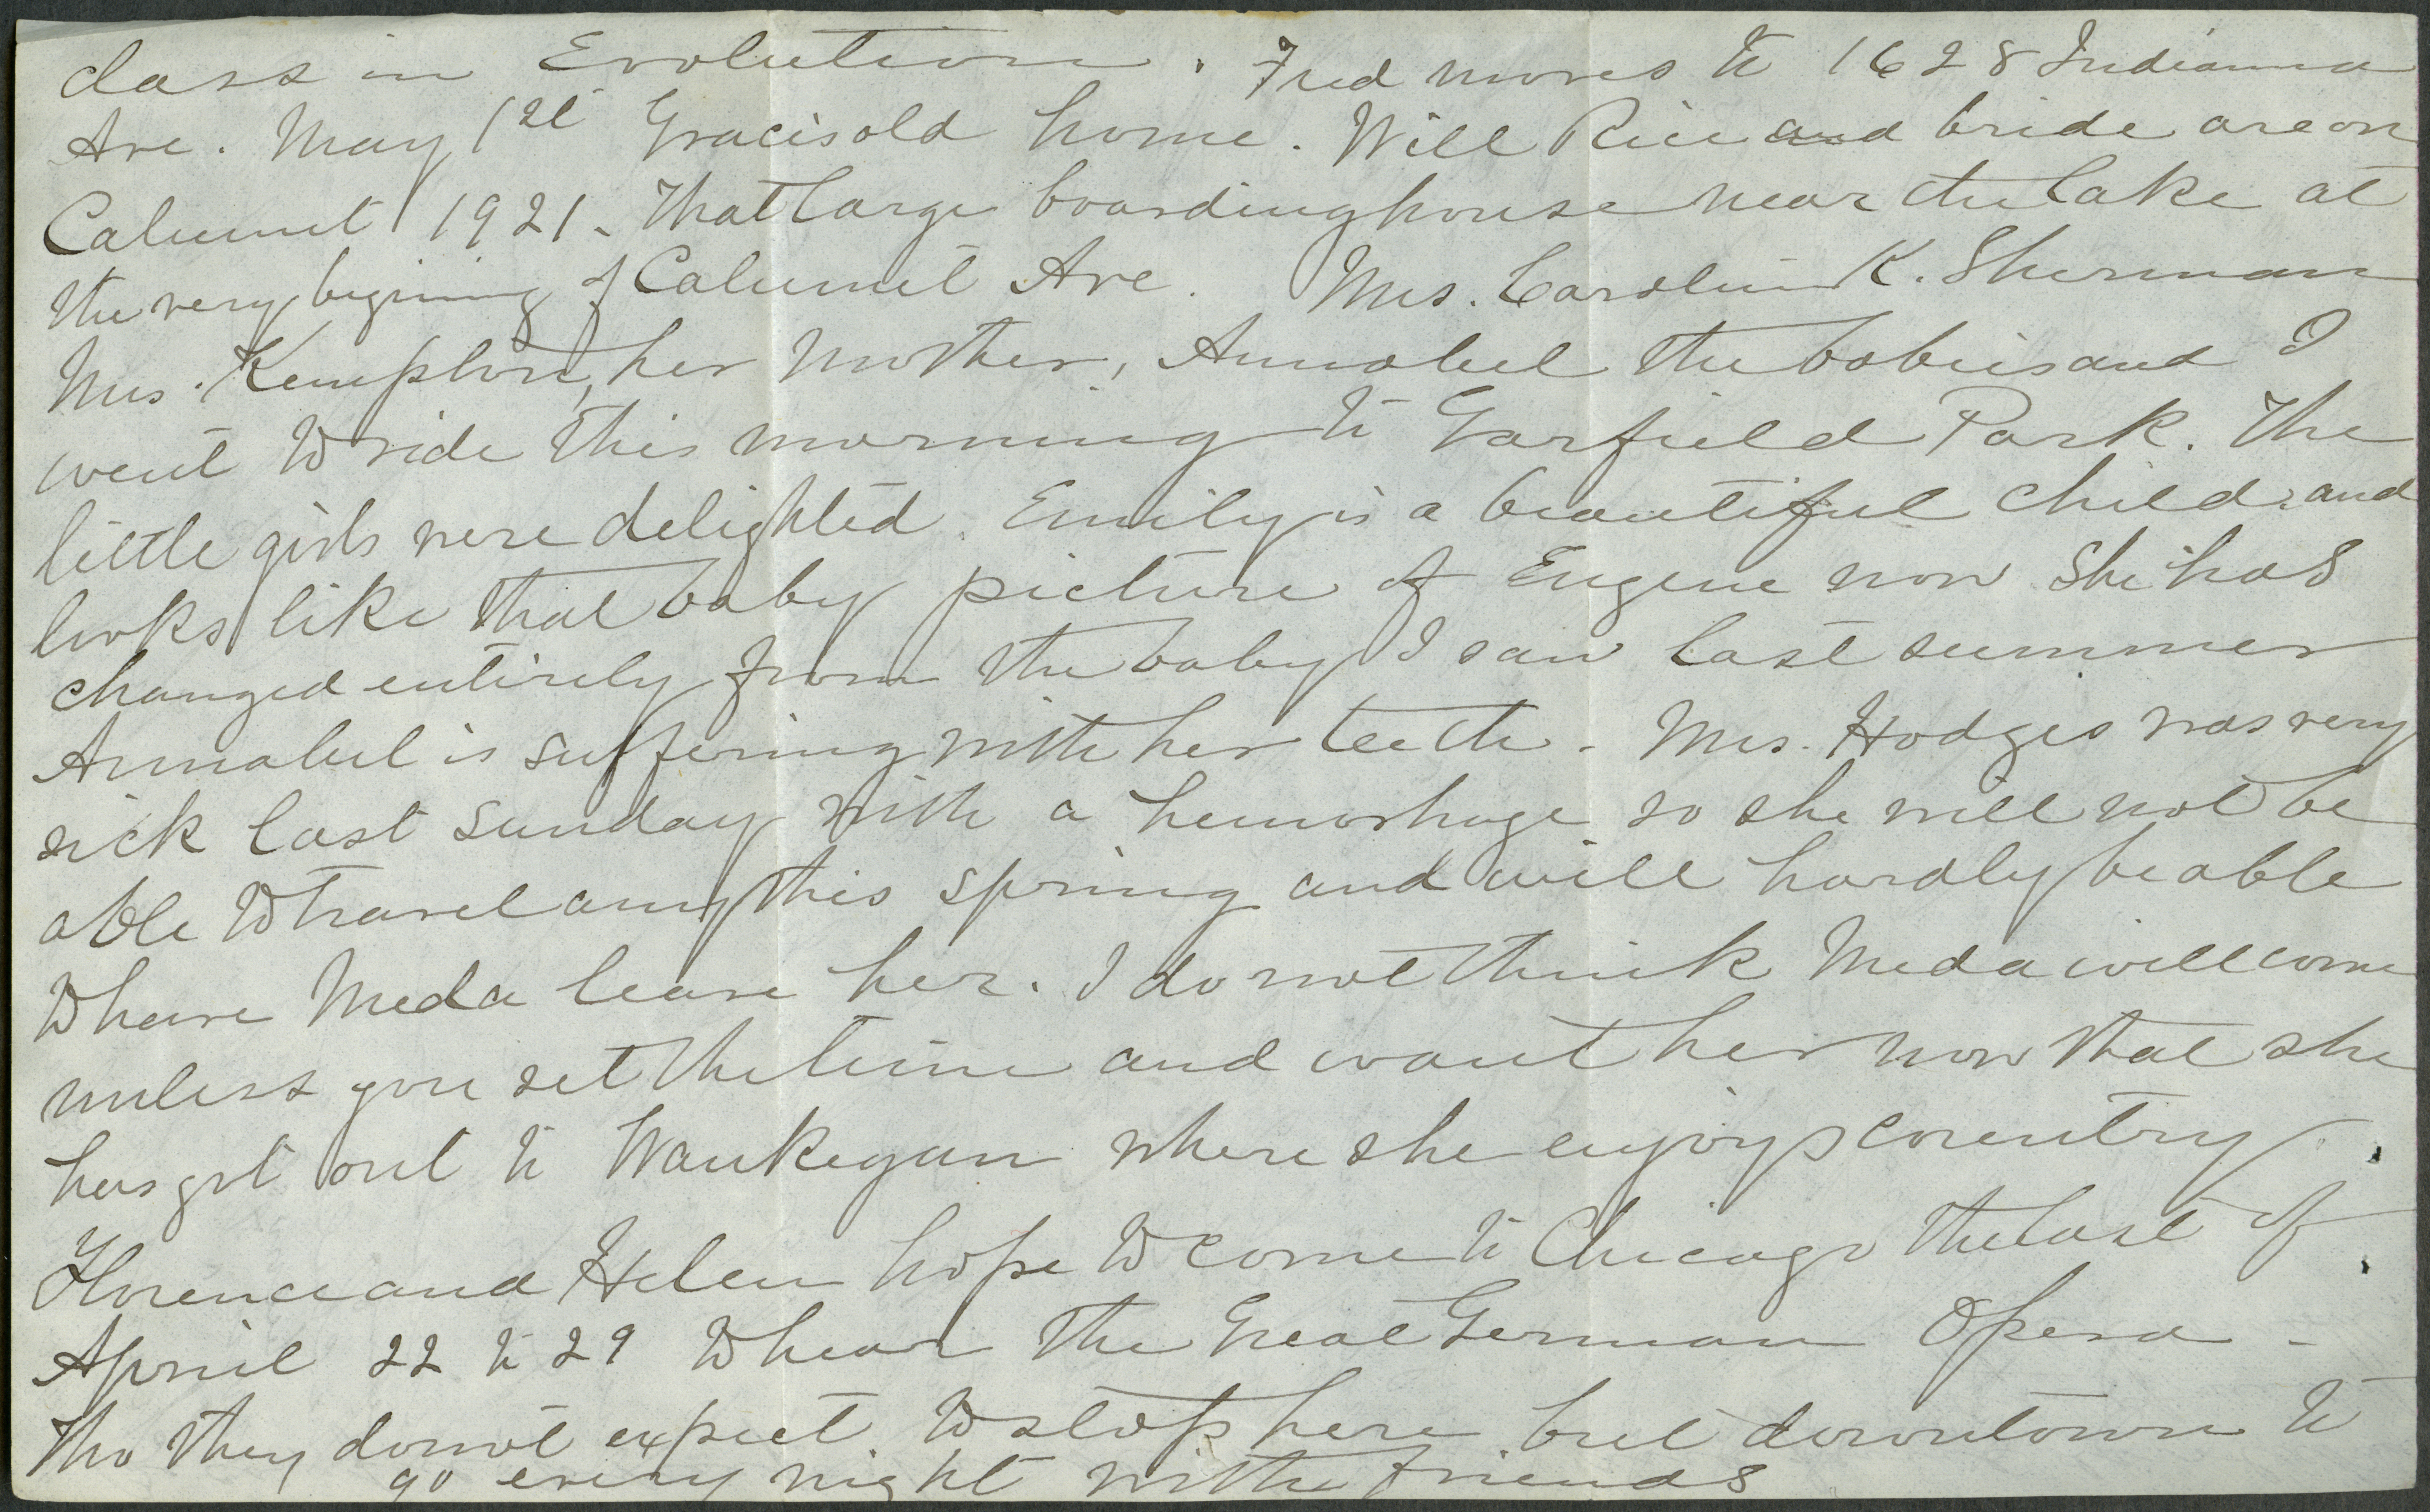 class in Evolution. Fred moves to 1628 Indianna
Ave. May 1st Gracis old home. Will Rice and bride are on
Calumet 1921. That large boardinghouse near the lake at
the very begining of Calumet Ave. Mrs. Carolin K. Sherman
Mrs. Kempton, her mother, Annabel the babies and I
went to ride this morning to Garfield Park. The
little girls were delighted. Emily is a beautiful child and
looks like that baby picture of Eugene now she has
changed entirely from the baby I saw last summer
Annabel is suffering with her teeth. Mrs. Hodges was very
sick last Sunday with a hemorhage so she will not be
able to travel any this spring and will hardly be able
to have Meda leave her. I do not think Meda will come
unless you set the time and want her now that she
has got out to Waukegan where she enjoys country.
Florence and Helen hope to come to Chicago the last of
April 22 to 29 to hear the Great German Opera -
tho they do not expect to stop here but downtown to
go every night with friends